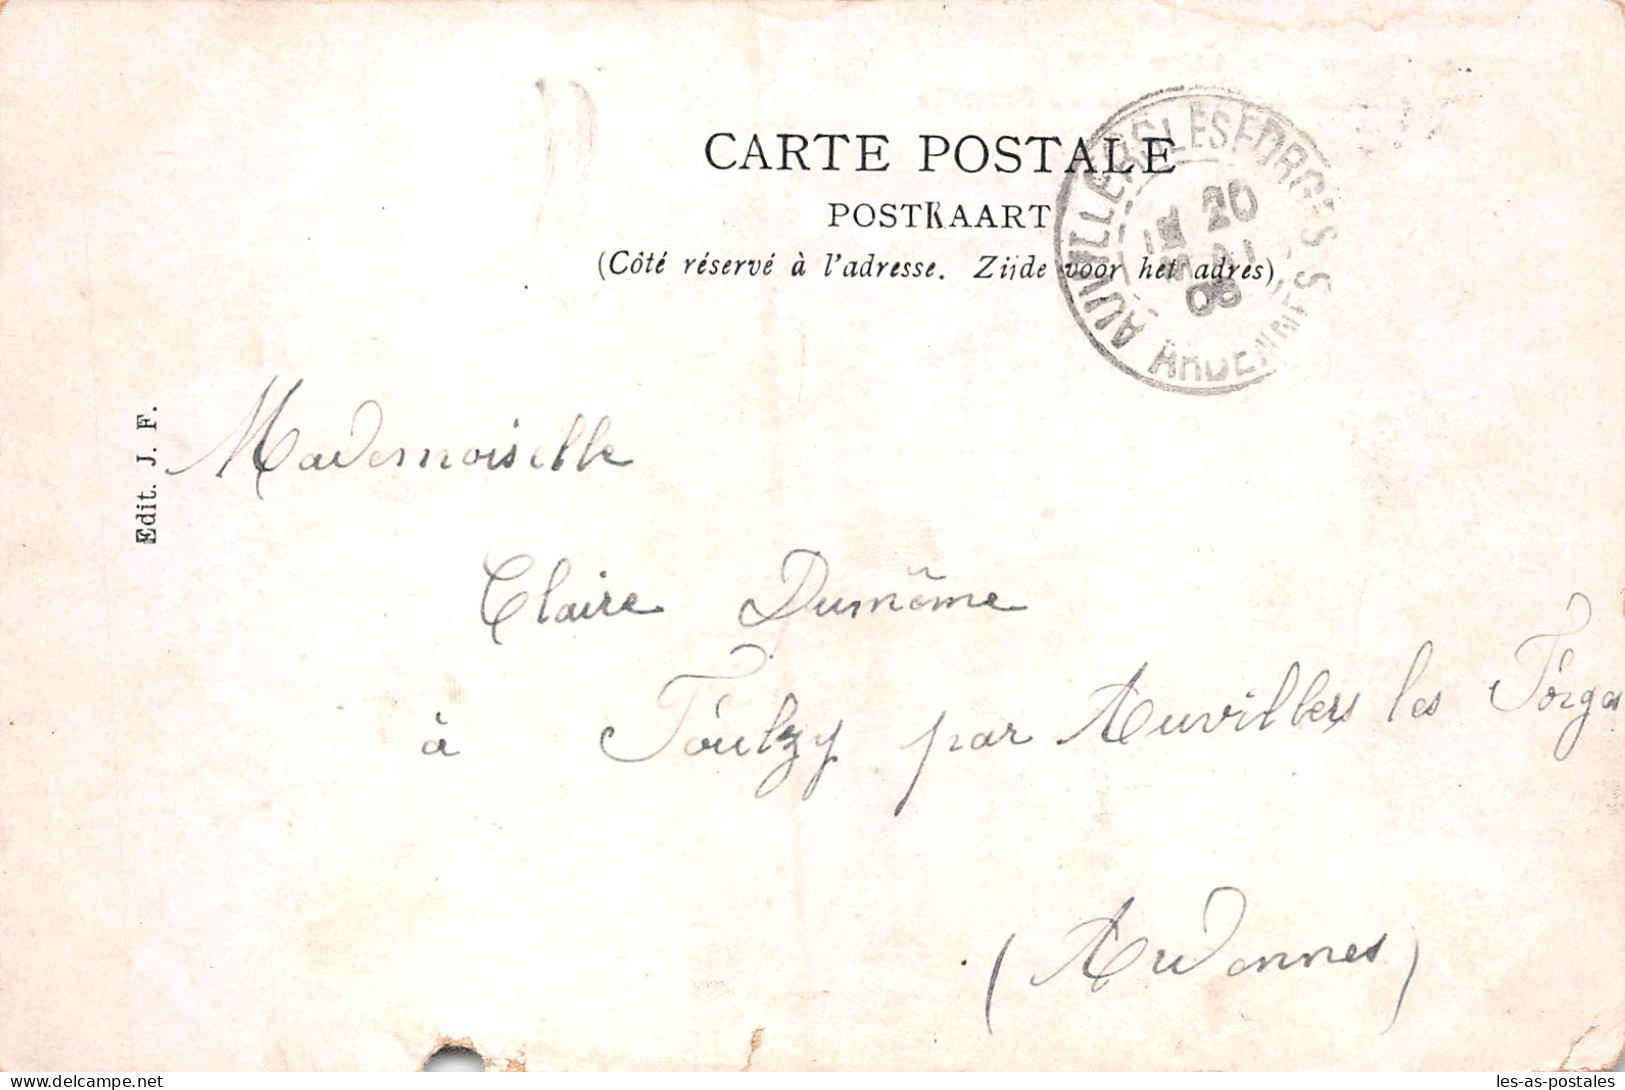 CARTE POSTALE
POSTKAART
(Côté réservé à l'adresse. Zijde voor het adres)
AUVILLERS LES FORGES
20
08
ARDENNES
Edit. J. F.
Mademoiselle
Claire Dumême
à Foulzy par Auvillers les Forges
(Ardennes)
les-as-postales